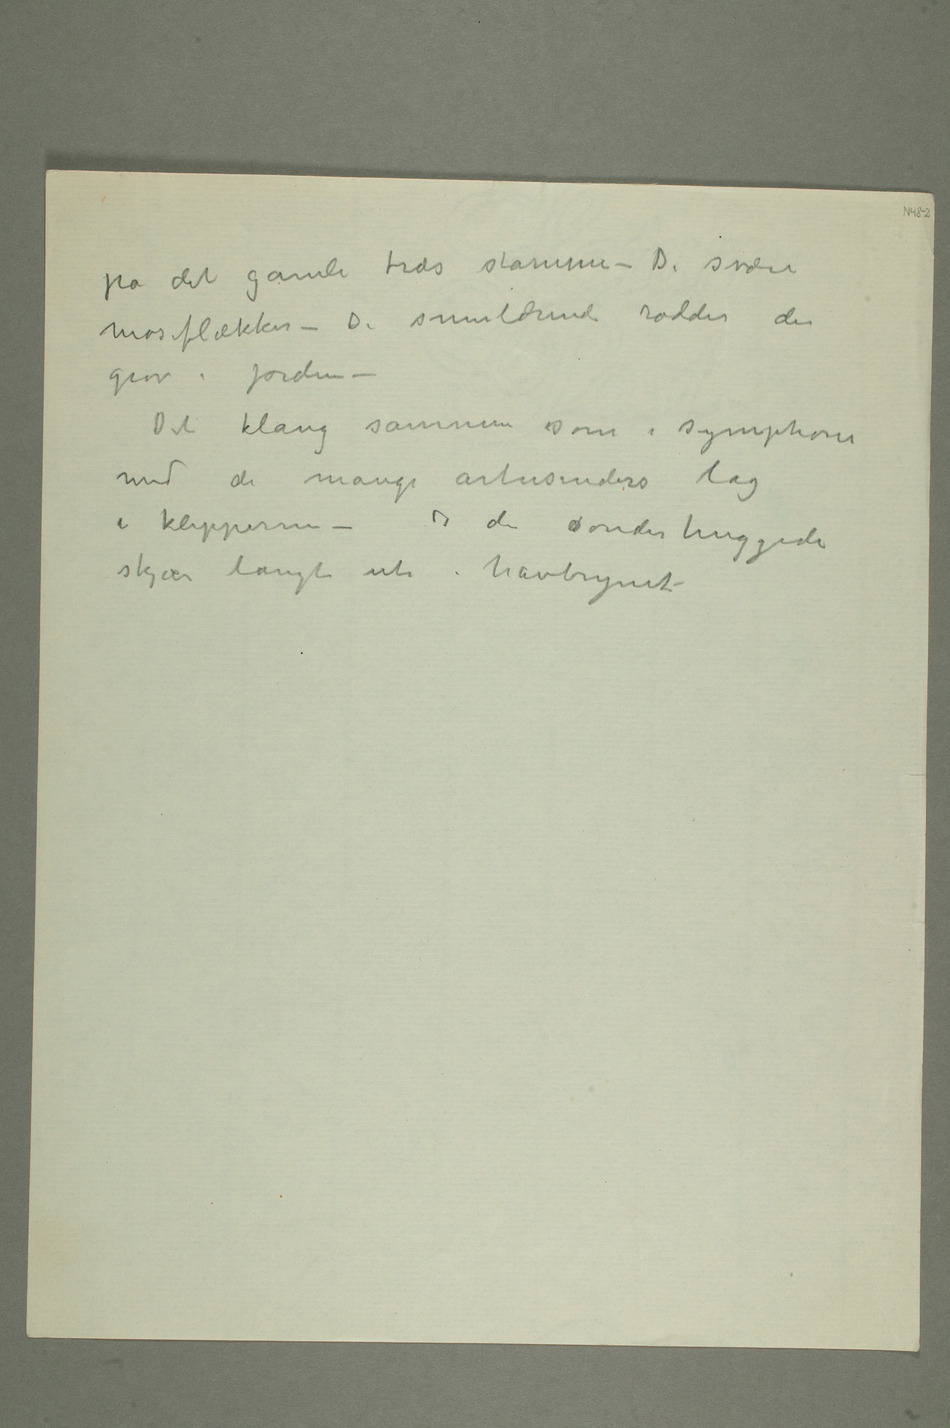 N48-2
på det gamle træs stamme – De svære
moseflækker – De smuldrende rødder der
grov i jorden –
Det klang sammen som i symphoni
med de mange artusinders lag
i klipperne – Og de sønderhuggede
skjær langt ute i havbrynet –